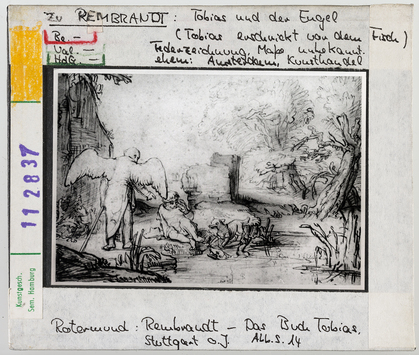 Zu REMBRANDT: Tobias und der Engel
(Tobias erschrickt vor dem Fisch)
Be. –
Val. –
HdG. –
Federzeichnung. Maße unbekannt.
ehem. Amsterdam, Kunsthandel
112837
Kunstgesch.
Sem. Hamburg
Rotermund: Rembrandt – Das Buch Tobias.
Stuttgart o.J. Abb. S. 14